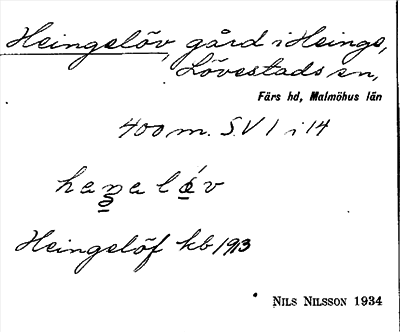 Heingelöv, gård i Heinge,
Lövestads sn,
Färs hd, Malmöhus län
400 m. S.V 1 i 14
Heingelöf kb 1913
NILS NILSSON 1934